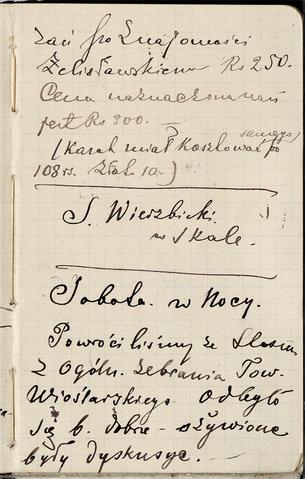 zaś po znajomości
Żelisławskiemu Rs 250.
Cena naznaczona nań
jest Rs 300. —
(Karah miał kosztować po
samego
108 rs. złoto 10.)
S. Wierzbicki
w Skale.
Sobota. w Nocy.
Powróciliśmy ze
z Ogóln. Zebrania Tow.
Wioślarskiego odbyło
się b. dobrze - ożywione
były dyskusye. —